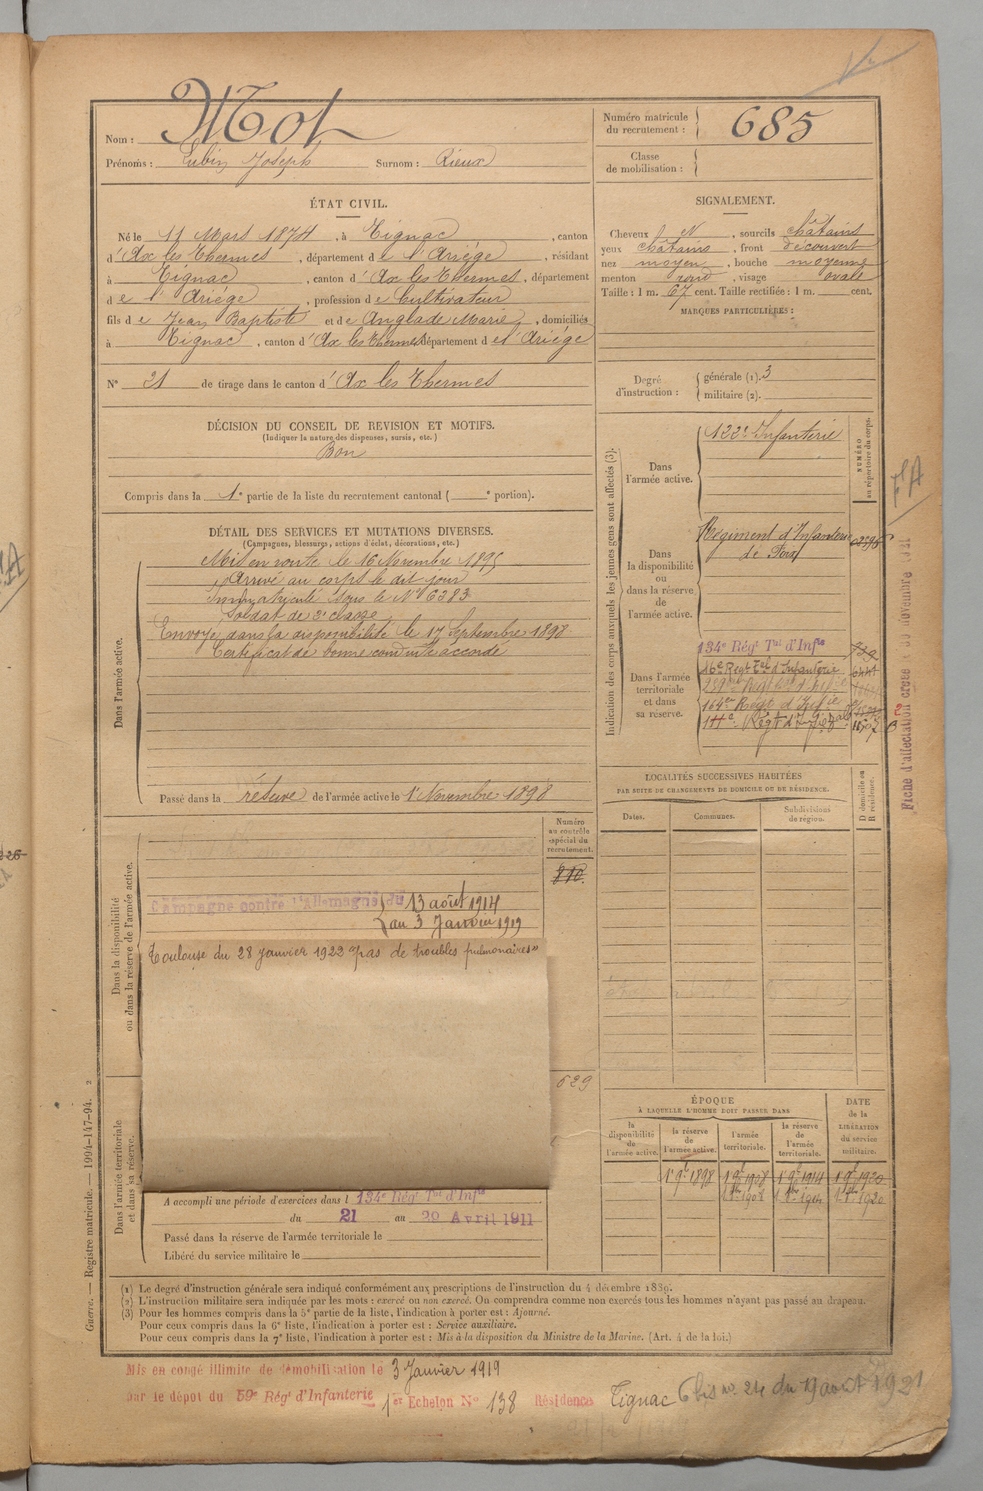 Nom : Mot
Prénoms : Lubin Joseph Surnom : Rieux
Numéro matricule du recrutement : 685
Classe de mobilisation :
ÉTAT CIVIL.
Né le 11 Mars 1874, à Tignac, canton
d'Ax les Thermes, département de l'Ariège, résidant
à Tignac, canton d'Ax les Thermes, département
de l'Ariège, profession de Cultivateur
fils de Jean Baptiste et de Anglade Marie, domiciliés
à Tignac, canton d'Ax les Thermes département de l'Ariège
N° 21 de tirage dans le canton d'Ax les Thermes
SIGNALEMENT.
Cheveux N, sourcils châtains
yeux châtains, front découvert
nez moyen, bouche moyenne
menton rond, visage ovale
Taille : 1 m. 67 cent. Taille rectifiée : 1 m. cent.
MARQUES PARTICULIÈRES :
Degré d'instruction : générale (1). 3
militaire (2).
DÉCISION DU CONSEIL DE REVISION ET MOTIFS.
(Indiquer la nature des dispenses, sursis, etc.)
Bon
Compris dans la 1e partie de la liste du recrutement cantonal ( e portion).
DÉTAIL DES SERVICES ET MUTATIONS DIVERSES.
(Campagnes, blessures, actions d'éclat, décorations, etc.)
Dans l'armée active.
Mis en route le 16 Novembre 1895
Arrivé au corps le dit jour
Immatriculé sous le N° 6383
Soldat de 2e classe
Envoyé dans la disponibilité le 17 Septembre 1898
Certificat de bonne conduite accordé
Passé dans la réserve de l'armée active le 1 Novembre 1898
Indication des corps auxquels les jeunes gens sont affectés (3).
NUMÉRO au répertoire du corps.
Dans l'armée active.
122e Infanterie
Dans la disponibilité ou dans la réserve de l'armée active.
Régiment d'Infanterie
de Foix
Dans l'armée territoriale et dans sa réserve.
134e Régt Tal d'Infie
16e Regt Tal d'Infanterie
164e Régt d'Infie
Fiche d'affectation créée
LOCALITÉS SUCCESSIVES HABITÉES
PAR SUITE DE CHANGEMENTS DE DOMICILE OU DE RÉSIDENCE.
D domicile ou R résidence.
Dates.
Communes.
Subdivisions de région.
Numéro au contrôle spécial du recrutement.
810
Dans la disponibilité ou dans la réserve de l'armée active.
Campagne contre l'Allemagne du 13 août 1914
au 3 Janvier 1919
Toulouse du 28 janvier 1922 "pas de troubles pulmonaires"
629
Dans l'armée territoriale et dans sa réserve.
A accompli une période d'exercices dans l 134e Régt Tal d'Infie
du 21 au 29 Avril 1911
Passé dans la réserve de l'armée territoriale le
Libéré du service militaire le
ÉPOQUE
À LAQUELLE L'HOMME DOIT PASSER DANS
la disponibilité de l'armée active.
la réserve de l'armée active.
l'armée territoriale.
la réserve de l'armée territoriale.
DATE de la LIBÉRATION du service militaire.
Guerre. — Registre matricule. — 1994-147-94.
(1) Le degré d'instruction générale sera indiqué conformément aux prescriptions de l'instruction du 4 décembre 1889.
(2) L'instruction militaire sera indiquée par les mots : exercé ou non exercé. On comprendra comme non exercés tous les hommes n'ayant pas passé au drapeau.
(3) Pour les hommes compris dans la 5e partie de la liste, l'indication à porter est : Ajourné.
Pour ceux compris dans la 6e liste, l'indication à porter est : Service auxiliaire.
Pour ceux compris dans la 7e liste, l'indication à porter est : Mis à la disposition du Ministre de la Marine. (Art. 4 de la loi.)
Mis en congé illimité de démobilisation le 3 Janvier 1919
par le dépôt du 59e Régt d'Infanterie 1er Echelon N° 138 Résidence Tignac